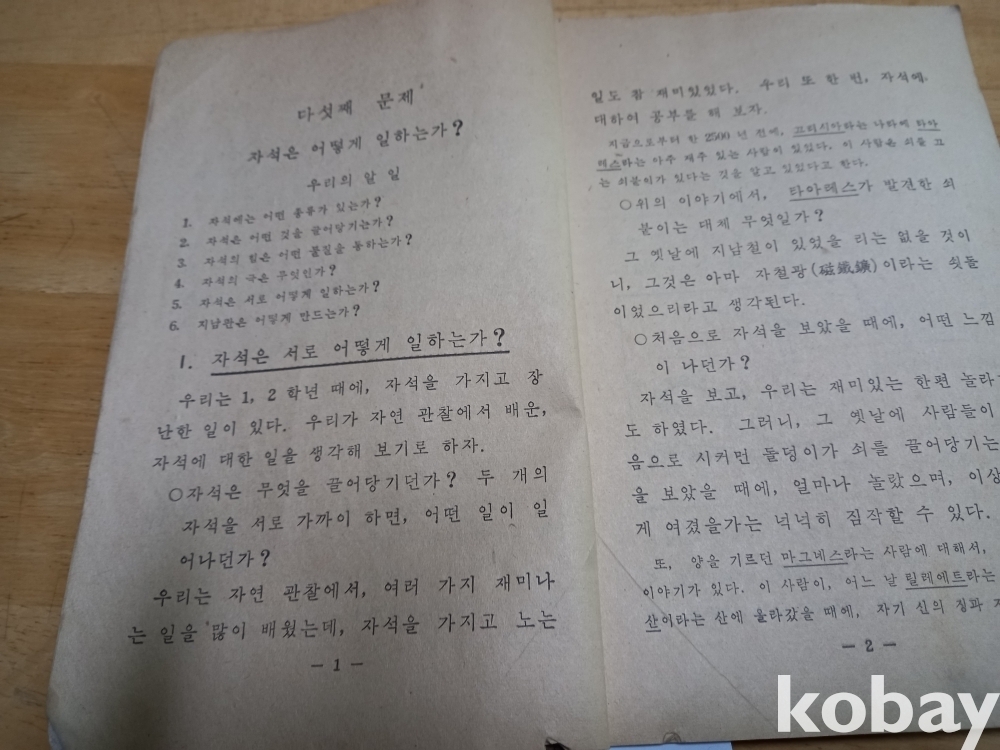 다섯째 문제
자석은 어떻게 일하는가?
우리의 알 일
1. 자석에는 어떤 종류가 있는가?
2. 자석은 어떤 것을 끌어당기는가?
3. 자석의 힘은 어떤 물질을 통하는가?
4. 자석의 극은 무엇인가?
5. 자석은 서로 어떻게 일하는가?
6. 지남판은 어떻게 만드는가?
1. 자석은 서로 어떻게 일하는가?
우리는 1, 2 학년 때에, 자석을 가지고 장
난한 일이 있다. 우리가 자연 관찰에서 배운,
자석에 대한 일을 생각해 보기로 하자.
○자석은 무엇을 끌어당기던가? 두 개의
자석을 서로 가까이 하면, 어떤 일이 일
어나던가?
우리는 자연 관찰에서, 여러 가지 재미나
는 일을 많이 배웠는데, 자석을 가지고 노는
— 1 —
일도 참 재미있었다. 우리 또 한 번, 자석에
대하여 공부를 해 보자.
지금으로부터 한 2500 년 전에, 끄리시아라는 나라에 타아
레스라는 아주 재주 있는 사람이 있었다. 이 사람은 쇠를 끄
는 쇠붙이가 있다는 것을 알고 있었다고 한다.
○위의 이야기에서, 타아레스가 발견한 쇠
붙이는 대체 무엇일가?
그 옛날에 지남철이 있었을 리는 없을 것이
니, 그것은 아마 자철광(磁鐵鑛)이라는 쇳돌
이었으리라고 생각된다.
○처음으로 자석을 보았을 때에, 어떤 느낌
이 나던가?
자석을 보고, 우리는 재미있는 한편 놀라
도 하였다. 그러니, 그 옛날에 사람들이
음으로 시커먼 돌덩이가 쇠를 끌어당기는
을 보았을 때에, 얼마나 놀랐으며, 이상
게 여겼을가는 넉넉히 짐작할 수 있다.
또, 양을 기르던 마그네스라는 사람에 대해서,
이야기가 있다. 이 사람이, 어느 날 릴레에트라는
산이라는 산에 올라갔을 때에, 자기 신의 징과
— 2 —
kobay